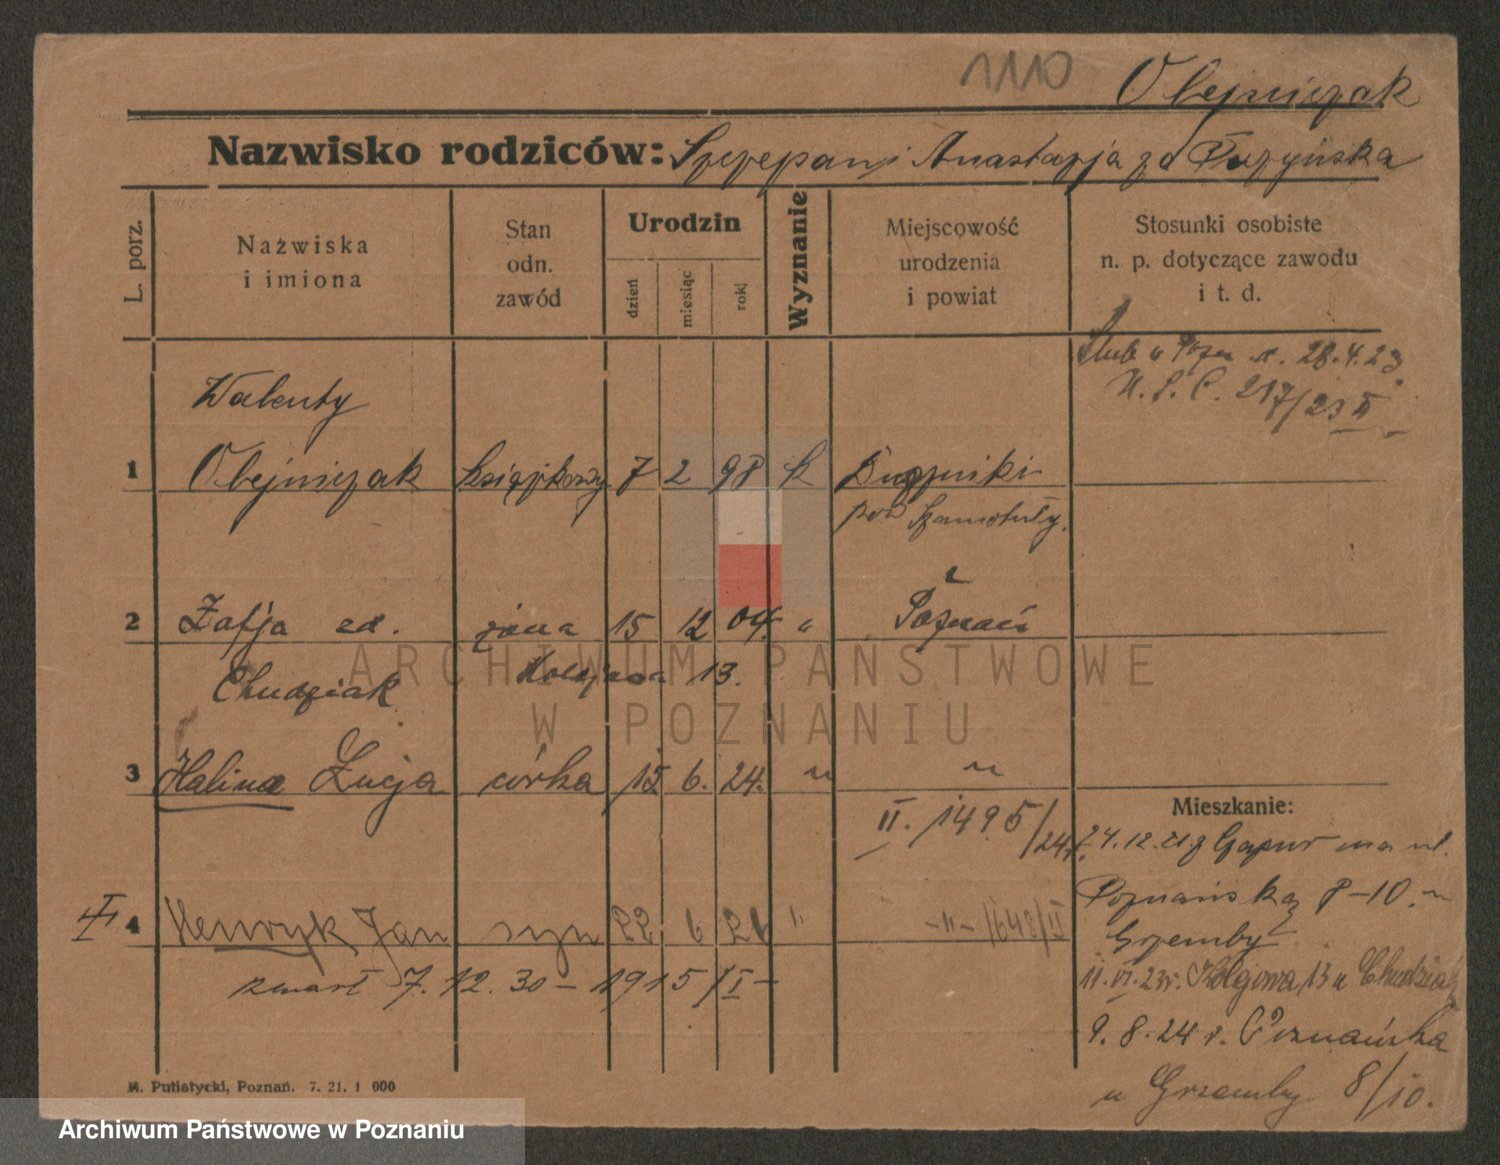 1110
Olejniczak
Nazwisko rodziców: Szczepan i Anastazja zd
L. porz.
Nazwiska
i imiona
Stan
odn.
zawód
Urodzin
dzień
miesiąc
rok
Wyznanie
Miejscowość
urodzenia
i powiat
Stosunki osobiste
n. p. dotyczące zawodu
i t. d.
Ślub w Pozn. d. 28.4.23
U. S. C. 217/23 II
Walenty
1 Olejniczak 7 2 98 k Duszniki
pow Szamotuły.
2 Zofja zd. żona 15 12 04. " Poznań
Chudziak 13.
3 Halina Łucja córka 15. 6. 24. " "
II. 1495/24
Mieszkanie:
24.12.21 z na ul.
Poznańską 8-10.
Grzemby
II 4 Henryk Jan syn 22 6 26 " -"- 1648/II
zmarł 7. 12. 30 - 1915/I-
11. VI. 23r. 13 u Chudziak
9. 8. 24 r. Poznańska
u Grzemby 8/10.
M. Putiatycki, Poznań. 7. 21. 1 000
ARCHIWUM PAŃSTWOWE
W POZNANIU
Archiwum Państwowe w Poznaniu